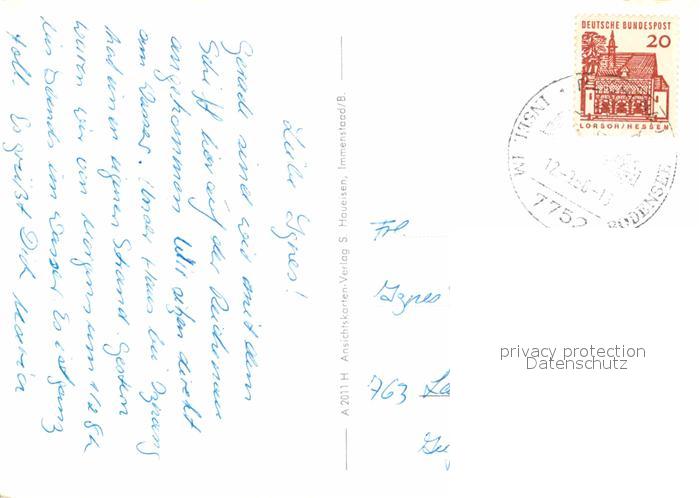 Liebe Agnes!
Gerade sind wir mit dem
Schiff hier auf der Reichenau
angekommen Wir sitzen direkt
am Wasser. Unser Haus bei
hat einen eigenen Strand. Gestern
waren wir von Morgens um 1/2 8 h
bis Abends im Wasser Es ist ganz
toll. Es grüßt Dich Maria
A 2011 H Ansichtskarten-Verlag S. Haueisen, Immenstaad/B.
Frl.
Agnes
763 La
DEUTSCHE BUNDESPOST
20
LORSCH/HESSEN
INSEL IM BODENSEE
7752
privacy protection
Datenschutz